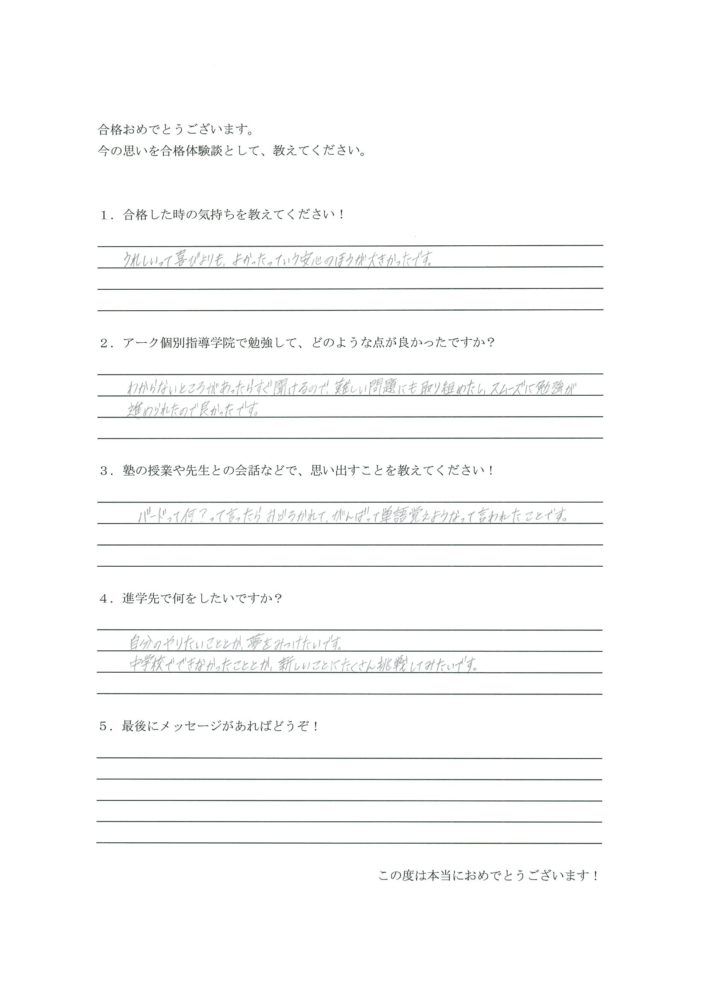 合格おめでとうございます。
今の思いを合格体験談として、教えてください。
1．合格した時の気持ちを教えてください！
うれしいって喜びよりも、よかったっていう安心のほうが大きかったです。
2．アーク個別指導学院で勉強して、どのような点が良かったですか？
わからないところがあったらすぐ聞けるので、難しい問題にも取り組めたし、スムーズに勉強が
進められたので良かったです。
3．塾の授業や先生との会話などで、思い出すことを教えてください！
バードって何？って言ったらおどろかれて、がんばって単語覚えようなって言われたことです。
4．進学先で何をしたいですか？
自分のやりたいこととか、夢をみつけたいです。
中学校でできなかったこととか、新しいことにたくさん挑戦してみたいです。
5．最後にメッセージがあればどうぞ！
この度は本当におめでとうございます！